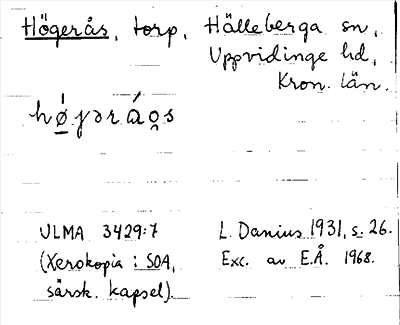 Högerås, torp, Hälleberga sn,
Uppvidinge hd,
Kron. län.
hǿ̱jəráo̯s
ULMA 3429:7
(Xerokopia i SOA,
särsk. kapsel)
L. Danius 1931, s. 26.
Exc. av E.Å. 1968.